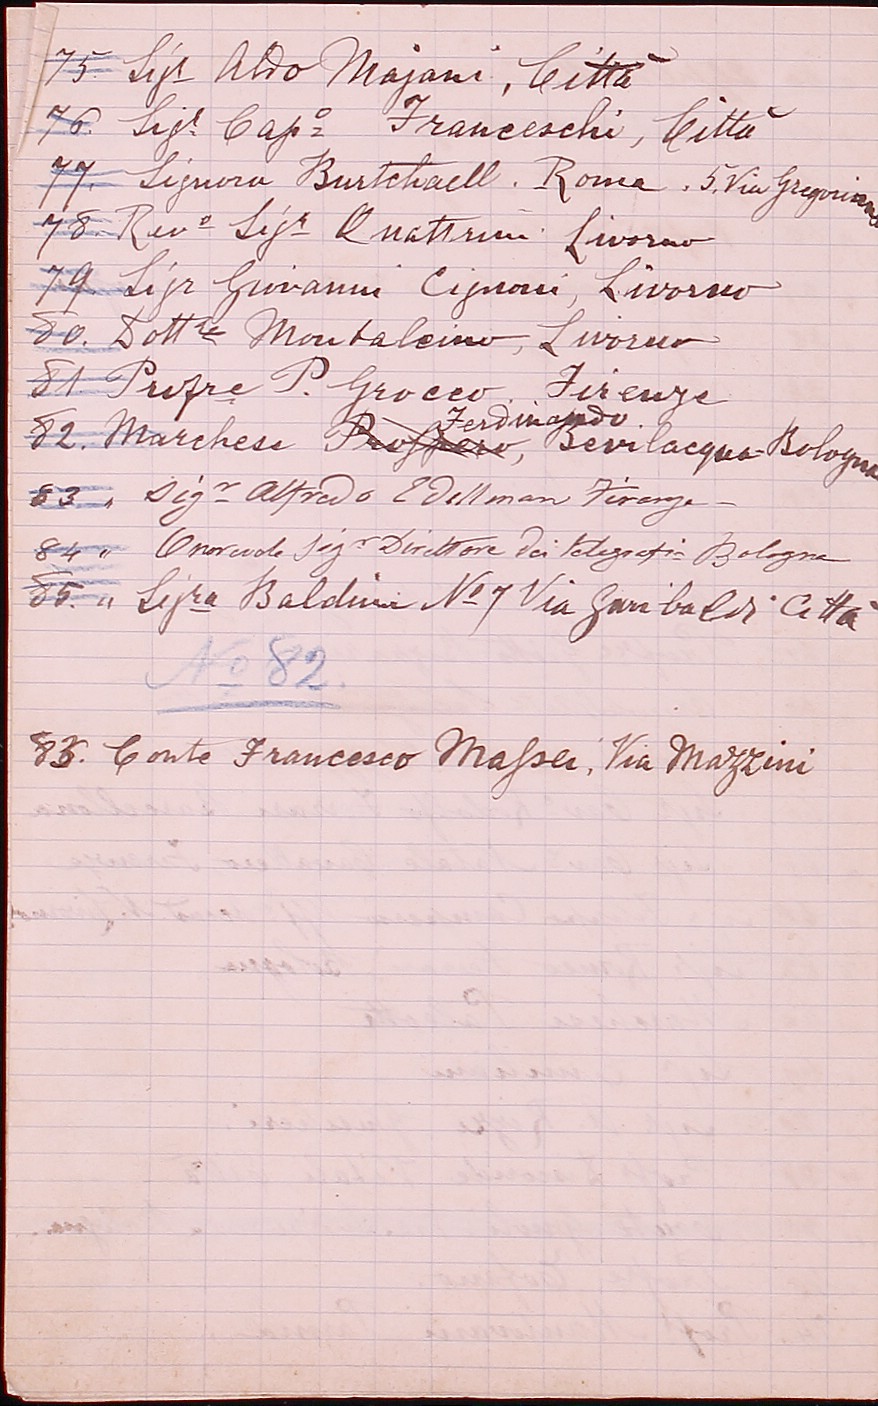 75. Sigr Aldo Majani, Città
76. Sigr Capo Franceschi, Città
77. Signora Burtchaell. Roma. 5, Via Gregoriana
78. Revo Sigr Quattrini Livorno
79. Sigr Giovanni Cignoni, Livorno
80. Dottre Montalcino, Livorno
81. Profre P. Grocco. Firenze
Ferdinando
82. Marchese Prospero, Bevilacqua-Bologna
83 " Sigr Alfredo Edellman Firenze
84 " Onorevole Sigr Direttore dei telegrafi - Bologna
85. " Sigra Baldini No 7 Via Garibaldi Città
No 82.
83. Conte Francesco Massei, Via Mazzini